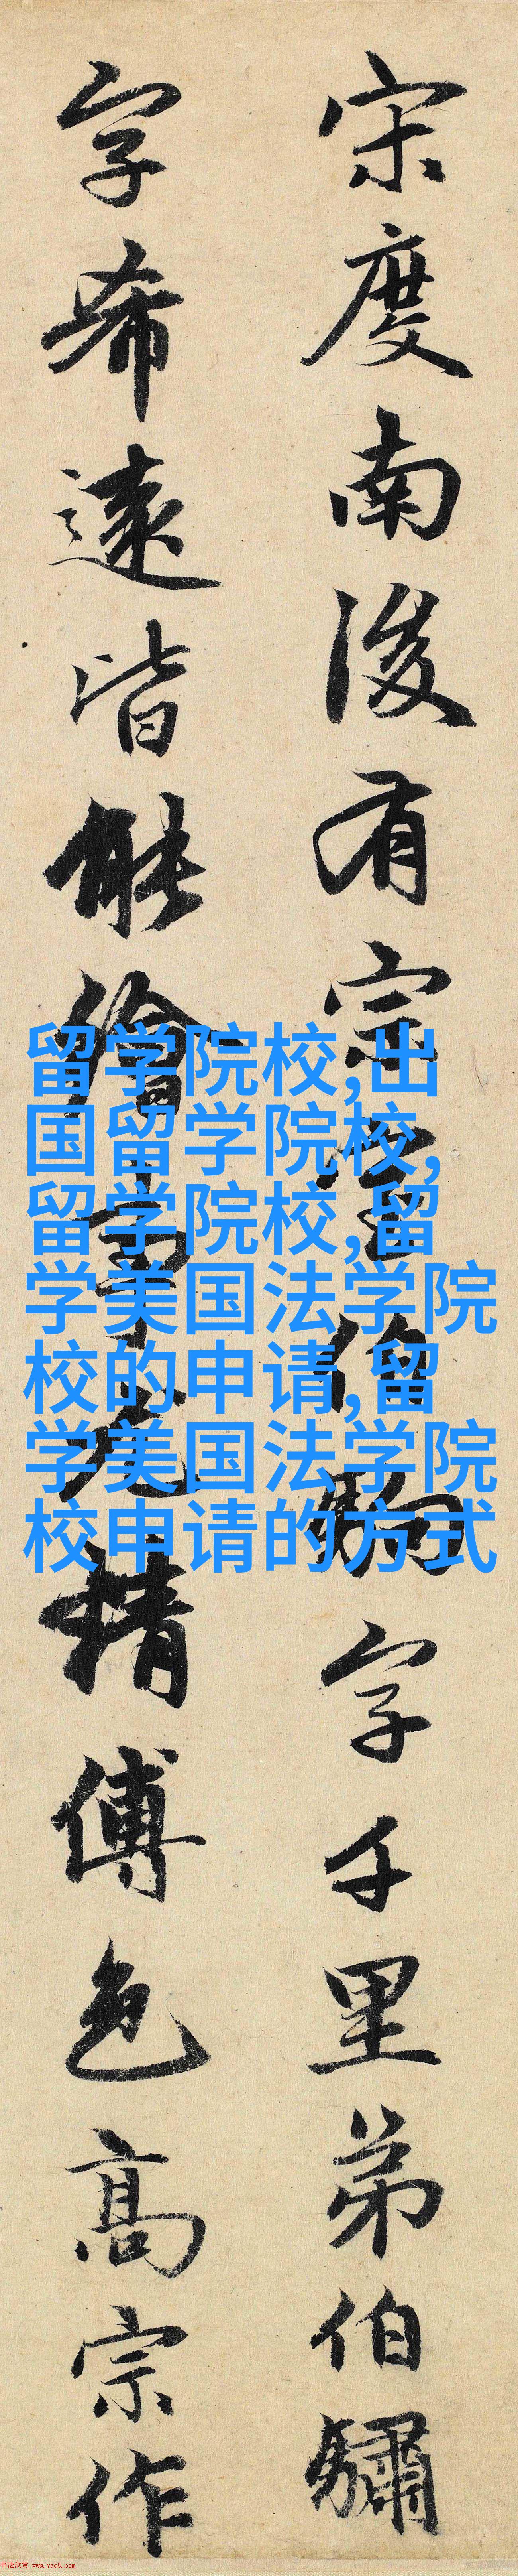 宋度南後有宗室伯駒字千里弟伯驌
字希遠皆能繪事尤精傅色高宗作
留学院校,出
国留学院校,
留学院校,留
学美国法学院
校的申请,留
学美国法学院
校申请的方式
书法欣赏 www.yac8.com